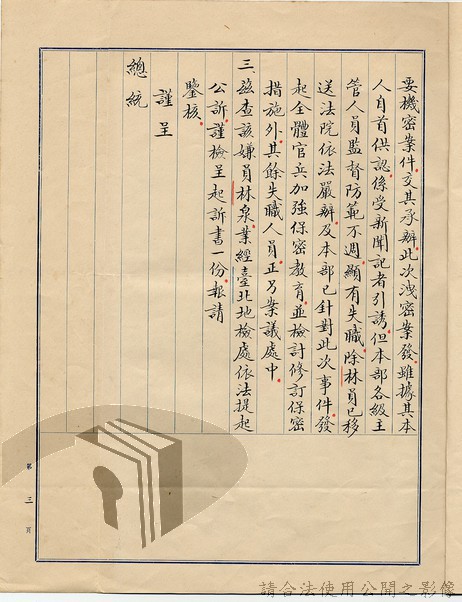 要機密案件，交其承辦，此次洩密案發，雖據其本
人自首供認，係受新聞記者引誘，但本部各級主
管人員監督防範不週，顯有失職，除林員已移
送法院依法嚴辦，及本部已針對此次事件，發
起全體官兵加強保密教育，並檢討修訂保密
措施外，其餘失職人員，正另案議處中。
三、茲查該嫌員林泉，業經臺北地檢處依法提起
公訴，謹檢呈起訴書一份，報請
鑒核。
謹呈
總統
第三頁
請合法使用公開之影像